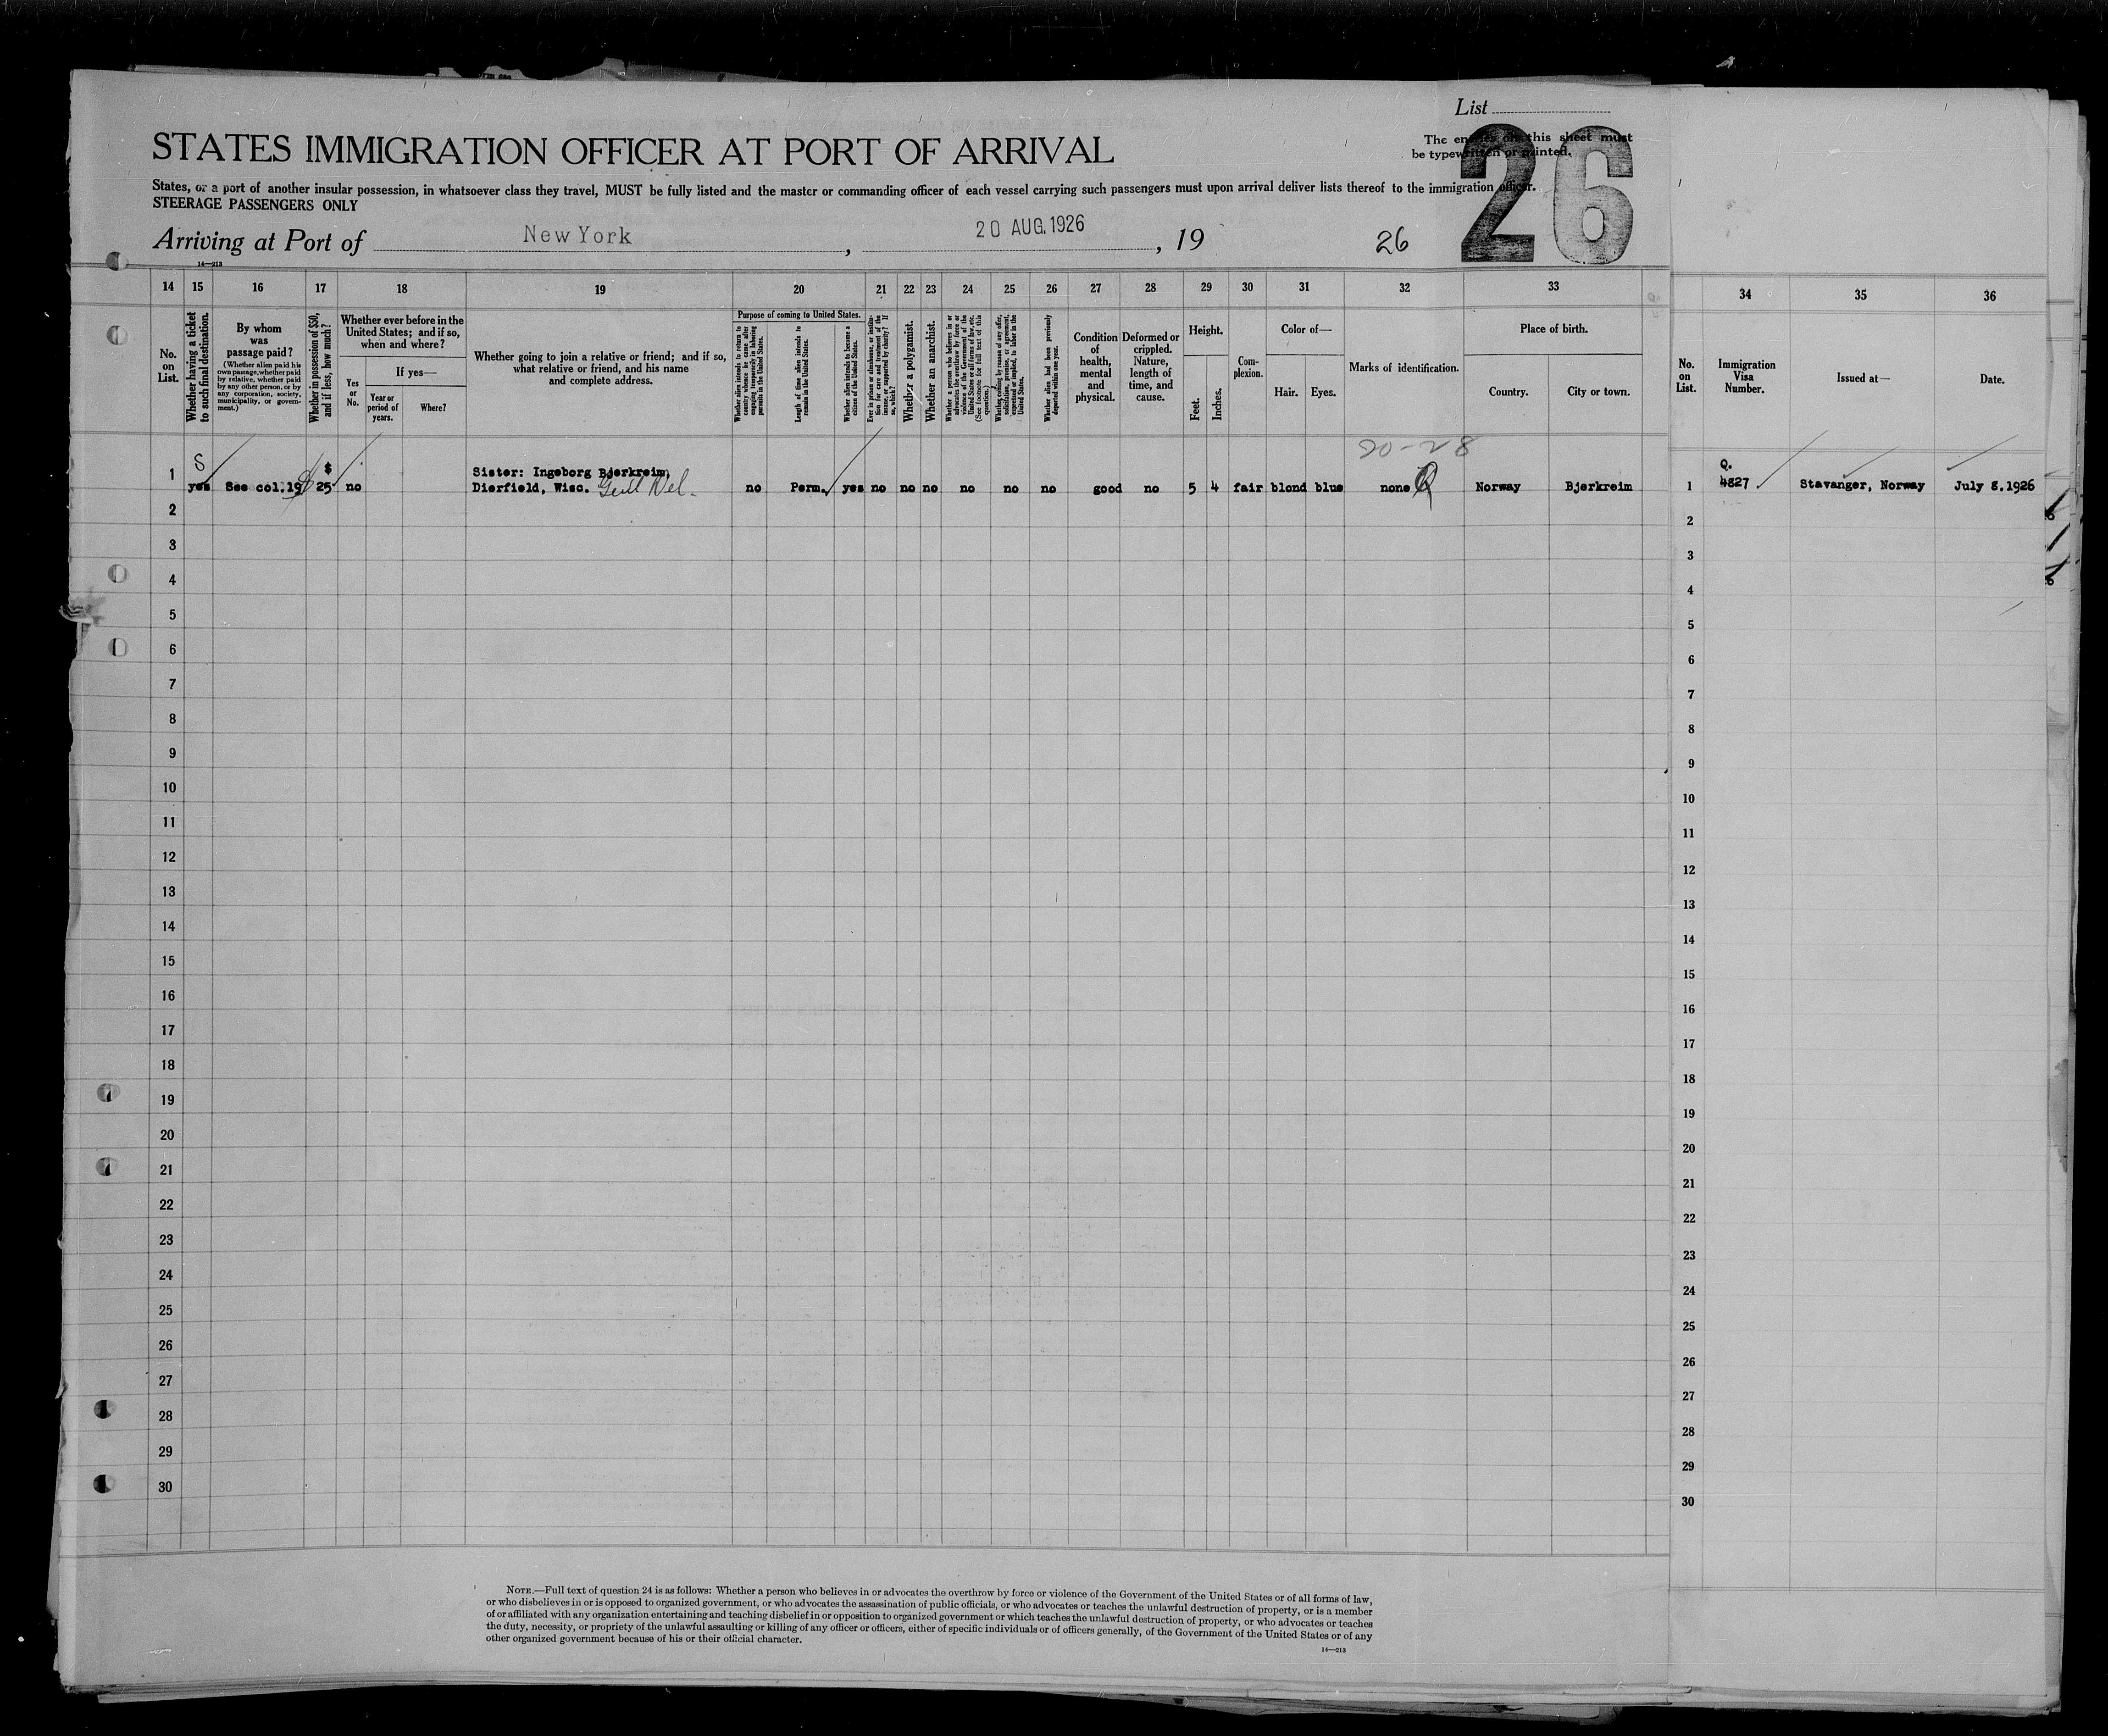 List
The entries on this sheet must
be typewritten or printed.
26
STATES IMMIGRATION OFFICER AT PORT OF ARRIVAL
States, or a port of another insular possession, in whatsoever class they travel, MUST be fully listed and the master or commanding officer of each vessel carrying such passengers must upon arrival deliver lists thereof to the immigration officer.
STEERAGE PASSENGERS ONLY
Arriving at Port of New York, 20 AUG. 1926, 19 26
14—213
14 15 16 17 18 19 20 21 22 23 24 25 26 27 28 29 30 31 32 33 34 35 36
No. on List.
Whether having a ticket to such final destination.
By whom was passage paid?
(Whether alien paid his own passage, whether paid by relative, whether paid by any other person, or by any corporation, society, municipality, or government.)
Whether in possession of $50, and if less, how much?
Whether ever before in the United States; and if so, when and where?
Yes or No.
If yes—
Year or period of years.
Where?
Whether going to join a relative or friend; and if so, what relative or friend, and his name and complete address.
Purpose of coming to United States.
Whether alien intends to return to country whence he came after engaging temporarily in laboring pursuits in the United States.
Length of time alien intends to remain in the United States.
Whether alien intends to become a citizen of the United States.
Ever in prison or almshouse, or institution for care and treatment of the insane, or supported by charity? If so, which?
Whether a polygamist.
Whether an anarchist.
Whether a person who believes in or advocates the overthrow by force or violence of the Government of the United States or all forms of law, etc. (See footnote for full text of this question.)
Whether coming by reason of any offer, solicitation, promise, or agreement, expressed or implied, to labor in the United States.
Whether alien had been previously deported within one year.
Condition of health, mental and physical.
Deformed or crippled. Nature, length of time, and cause.
Height.
Feet.
Inches.
Complexion.
Color of—
Hair.
Eyes.
Marks of identification.
Place of birth.
Country.
City or town.
No. on List.
Immigration Visa Number.
Issued at—
Date.
20-28
S $ Sister: Ingeborg Bjerkreim, Q.
1 yes See col.19 25 no Dierfield, Wisc. no Perm. yes no no no no no no good no 5 4 fair blond blue none Norway Bjerkreim 1 4827 Stavanger, Norway July 8.1926
2 2
3 3
4 4
5 5
6 6
7 7
8 8
9 9
10 10
11 11
12 12
13 13
14 14
15 15
16 16
17 17
18 18
19 19
20 20
21 21
22 22
23 23
24 24
25 25
26 26
27 27
28 28
29 29
30 30
NOTE.—Full text of question 24 is as follows: Whether a person who believes in or advocates the overthrow by force or violence of the Government of the United States or of all forms of law,
or who disbelieves in or is opposed to organized government, or who advocates the assassination of public officials, or who advocates or teaches the unlawful destruction of property, or is a member
of or affiliated with any organization entertaining and teaching disbelief in or opposition to organized government or which teaches the unlawful destruction of property, or who advocates or teaches
the duty, necessity, or propriety of the unlawful assaulting or killing of any officer or officers, either of specific individuals or of officers generally, of the Government of the United States or of any
other organized government because of his or their official character.
14—213